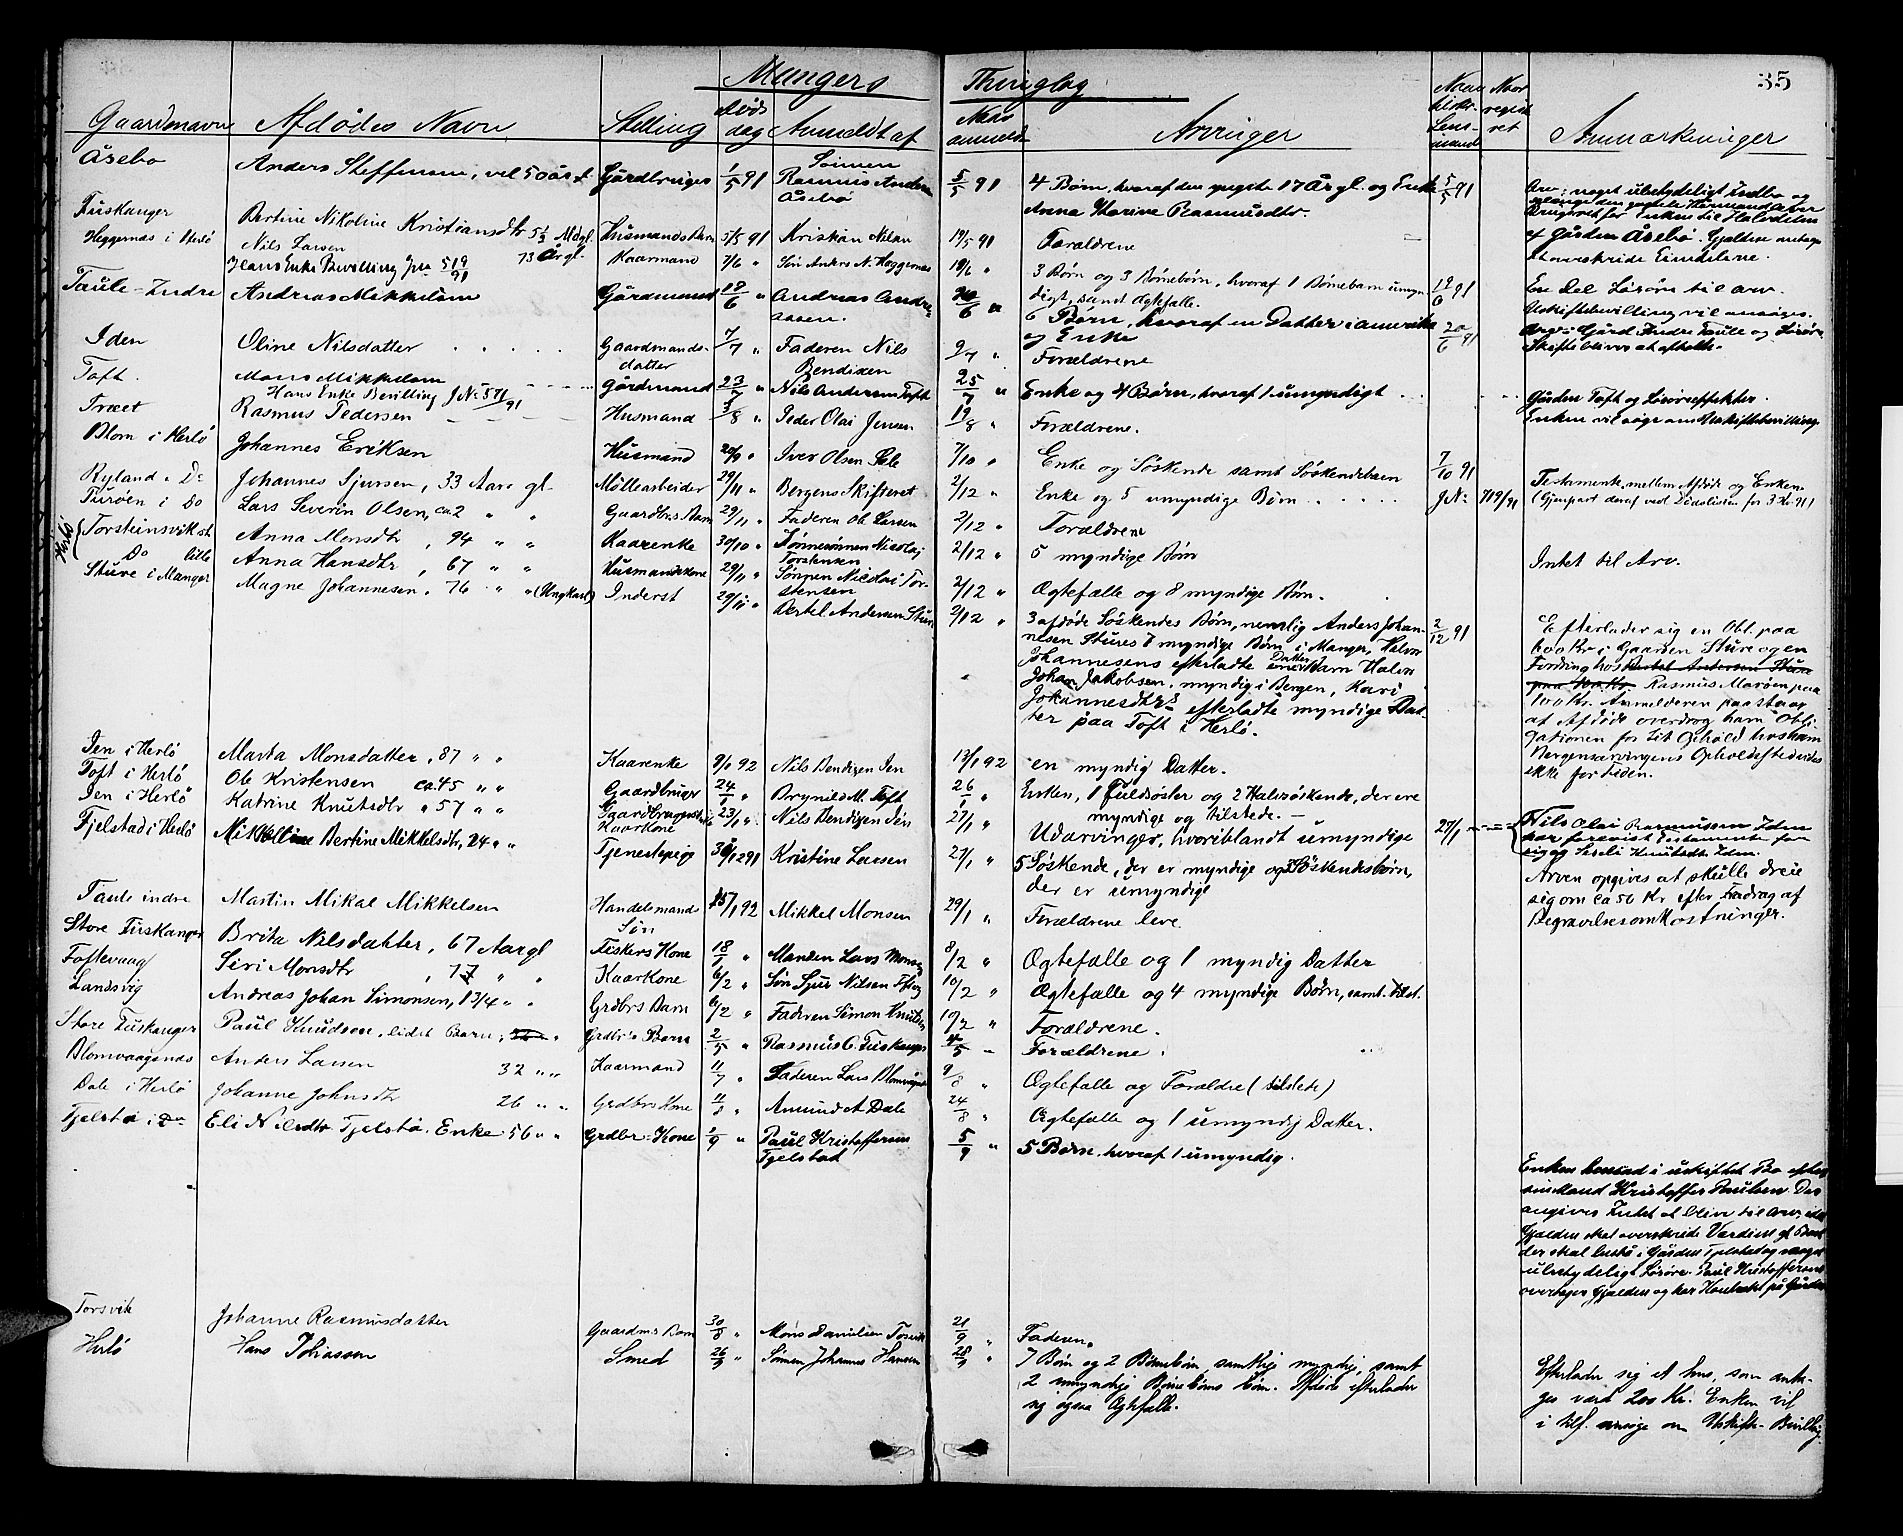 Mangers Thinglag 35
Gaardsnavn Afdødes Navn Stilling Døds dag Anmeldt af Naar anmeldt Arvinger Naar Naar registret Anmærkninger
Åsebø Anders Steffensen, vel 50 år gl. Gårdbruger 1/5 91 Sønnen Rasmus Anders Åsebø 5/5 91 4 Børn, hvoraf den yngste 17 År gl. og Enke 5/5 91
Anna Marine Rasmusdtr.
Arv: noget ubetydeligt Indbo og
Brugsret for Enken til Halvdelen
af Gården Åsebø. Gjælden antages
at overskride Eiendelene.
Tuskanger Bertine Nikoline Kristiansdtr 5 1/2 Mdgl. Husmands Barn 5/5 91 Kristian Nilsen 19/5 91 Forældrene
Heggernas i Herlø Nils Larsen 73 År gl. Kaarmand 7/6 " Søn Anders N. Heggernas 18/6 " 3 Børn og 3 Børnebørn, hvoraf 1 Børnebarn umyn- 19/6 91
Hans Enke Bevilling Jno 519/91
digt, samt Ægtefælle.
En Del Løsøre til Arv.
Uskiftebevilling vil ansøges.
Taule-Indre Andreas Mikkelsen Gårdmand 18/6 " Andreas Andreassen. 20/6 " 6 Børn, hvoraf en Datter i Amerika 20/6 91
og Enke
Arv: Gård Indre Taule og Løsøre
Skifte bliver at afholde.
Iden Oline Nilsdatter Gaardmands-datter 7/7 " Faderen Nils Bendixen 9/7 " Forældrene
Toft. Mons Mikkelsen Gårdmand 23/7 " Nils Andersen Toft 25/7 " Enke og 4 Børn, hvoraf 1 umyndigt
Hans Enke Bevilling J No 571/91
Gården Toft og Løsøreeffekter.
Enken vil søge om Uskiftebevilling
Træet Rasmus Pedersen Husmand 3/8 " Peder Olai Jensen 19/8 " Forældrene.
Blom i Herlø Johannes Eriksen Husmand 20/9 " Iver Olsen Sele 7/10 " Enke og Søskende samt Søskendebørn 7/10 91
Testamente mellem Afdøde og Enken.
Ryland " Do Johannes Sjursen, 33 Aar gl. Møllearbeider 29/11 " Bergens Skifteret 2/12 " Enke og 5 umyndige Børn J No 719/91
Turøen i Do Lars Severin Olsen, ca 2 " " Gaardbrs Barn 29/11 " Faderen Ole Larsen 2/12 " Forældrene
Herlø Torsteinsvik st. Anna Monsdtr, 94 " " Kaarenke 30/10 " Sønnesønnen Nicolai Torstensen 2/12 " 5 myndige Børn
Intet til Arv.
Do lille Anna Hansdtr, 67 " " Husmandskone 29/11 " Sønnen Nicolai Torstensen 2/12 " Ægtefælle og 8 myndige Børn.
Sture i Manger Magne Johannesen, 76 " " (Ungkarl) Inderst 29/11 " Bertel Andersen Sture 2/12 " 3 afdøde Søskendes Børn, nemlig Anders Johan- 2/12 91
nesen Stures 7 myndige Børn i Manger, Halvor
Johannesens efterladte Datter Halvor
Johan Jakobsen, myndig i Bergen, Kari
Johannesdtrs efterladte myndige Dat-
ter paa Toft i Herlø.
Efterlader sig en Obl. paa
600 Kr i Gaarden Sture og en
Fordring hos Bertel Andersen Sture
Rasmus Marøen paa
100 Kr. Anmelderen paastaar
at Afdøde overdrog ham Obli-
gationen for sit Ophold hos ham
Bergensarvingens Opholdssted vides
ikke for Tiden.
Ien i Herlø Marta Monsdatter, 87 " " Kaarenke 9/1 92 Nils Bendixen Ien 13/1 92 en myndig Datter.
Toft i Herlø Ole Kristensen ca. 45 " " Gaardbruger 24/1 " Brynild M. Toft 26/1 " Enken, 1 Fuldsøster og 2 Halvsøskende, der ere
myndige og tilstede. —
Ien i Herlø Katrine Knutsdtr " 57 " " Kaarkone 23/1 " Nils Bendixen Ien 27/1 " Udarvinger, hvoriblandt umyndige 27/1
Nils Olai Rasmussen Iden
har forevist Testamente for
sig og Seseli Knutsdtr Iden.
Fjelstad i Herlø Mikkeline Bertine Mikkelsdtr, 24 " " Tjenestepige 30/12 91 Kristine Larsen 27/1 " 5 Søskende, der er myndige og Søskendebørn,
der er umyndige
Arven opgives at skulle dreie
sig om ca 50 Kr efter Fradrag af
Begravelsesomkostninger.
Taule indre Martin Mikal Mikkelsen Handelsmands Søn 15/1 92 Mikkel Monsen 29/1 " Forældrene leve.
Store Tuskanger Brita Nilsdatter, 67 Aar gl Fiskers Kone 18/1 " Manden Lars Monsen 8/2 " Ægtefælle og 1 myndig Datter
Toftevaag Siri Monsdtr, 77 " " Kaarkone 6/2 " Søn Sjur Nilsen 10/2 " Ægtefælle og 4 myndige Børn, samt. tilst.
Landsvig Andreas Johan Simonsen, 1 3/4 " " Grdbrs Barn 6/2 " Faderen Simon Knutsen 10/2 " Forældrene.
Store Tuskanger Paul Knudsen, lidet Barn, Grdbrs Barn 2/5 " Rasmus C. Tuskanger 4/5 " Forældrene.
Blomvaagenes Anders Larsen 32 " " Kaarmand 11/7 " Faderen Lars Blomvågnes 9/8 " Ægtefælle og Forældre (tilstede)
Dale i Herlø Johanne Johnsdtr 26 " " Grdbrs Kone 11/8 " Amund A Dale 24/8 " Ægtefælle og 1 umyndig Datter.
Fjelstø i Do Eli Nilsdtr Fjelstø. Enke 56 " " Grdbr. Kone 1/9 " Paul Kristoffersen Fjelstad 5/9 " 5 Børn, hvoraf 1 umyndig.
Enken hensad i uskiftet Bo efter
sin Mand Kristoffer Paulsen. Der
angives Intet at blive til Arv, idet
Gjælden skal overskride Værdien af Boet
der skal bestå i Gården Fjelstad og noget
ubetydeligt Løsøre. Paul Kristoffersen
overtager Gjælden og har Kontrakt på Gården
Torsvik Johanne Rasmusdatter Gaardms Barn 30/8 " Mons Danielsen Torsvik 21/9 " Faderen.
Herlø Hans Tobiassen Smed 26/9 " Sønnen Johannes Hansen 28/9 " 7 Børn og 2 Børnebørn, samtlige myndige, samt
2 umyndige Børnebørns børn. Afdøde efterlader
sig ogsaa Ægtefælle.
Efterlader sig et hus, som anta-
ges værd 200 Kr. Enken vil
i tilf. ansøge om Uskifte-Bevilling.